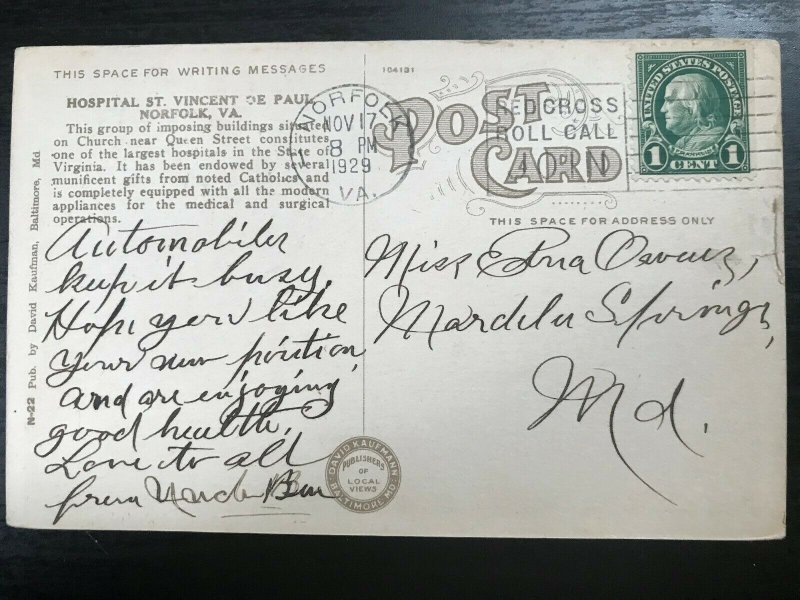 THIS SPACE FOR WRITING MESSAGES
HOSPITAL ST. VINCENT DE PAUL
NORFOLK, VA.
This group of imposing buildings situated
on Church near Queen Street constitutes
one of the largest hospitals in the State of
Virginia. It has been endowed by several
munificent gifts from noted Catholics and
is completely equipped with all the modern
appliances for the medical and surgical
operations.
Automobiles
keep it busy.
Hope you like
your new position
and are enjoying
good health,
Love to all
from Uncle Ben
N-22 Pub. by David Kaufman, Baltimore, Md.
104131
POST
CARD
NORFOLK
NOV 17
8 PM
1929
VA.
RED CROSS
ROLL CALL
U.S. POSTAGE
FRANKLIN
1 CENT 1
THIS SPACE FOR ADDRESS ONLY
Miss Edna Owens,
Mardela Springs,
Md.
DAVID KAUFMANN
PUBLISHERS
OF
LOCAL
VIEWS
BALTIMORE MD.